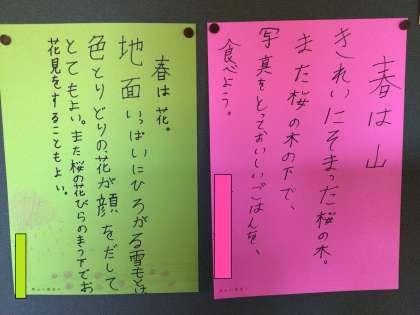 春は山
きれいにそまった桜の木。
また桜の木の下で、
写真をとっておいしいごはんを、
食べよう。
春は花。
地面いっぱいにひろがる雪もとけ
色とりどりの花が顔をだして
とてもよい。また桜の花びらのまう下でお
花見をすることもよい。